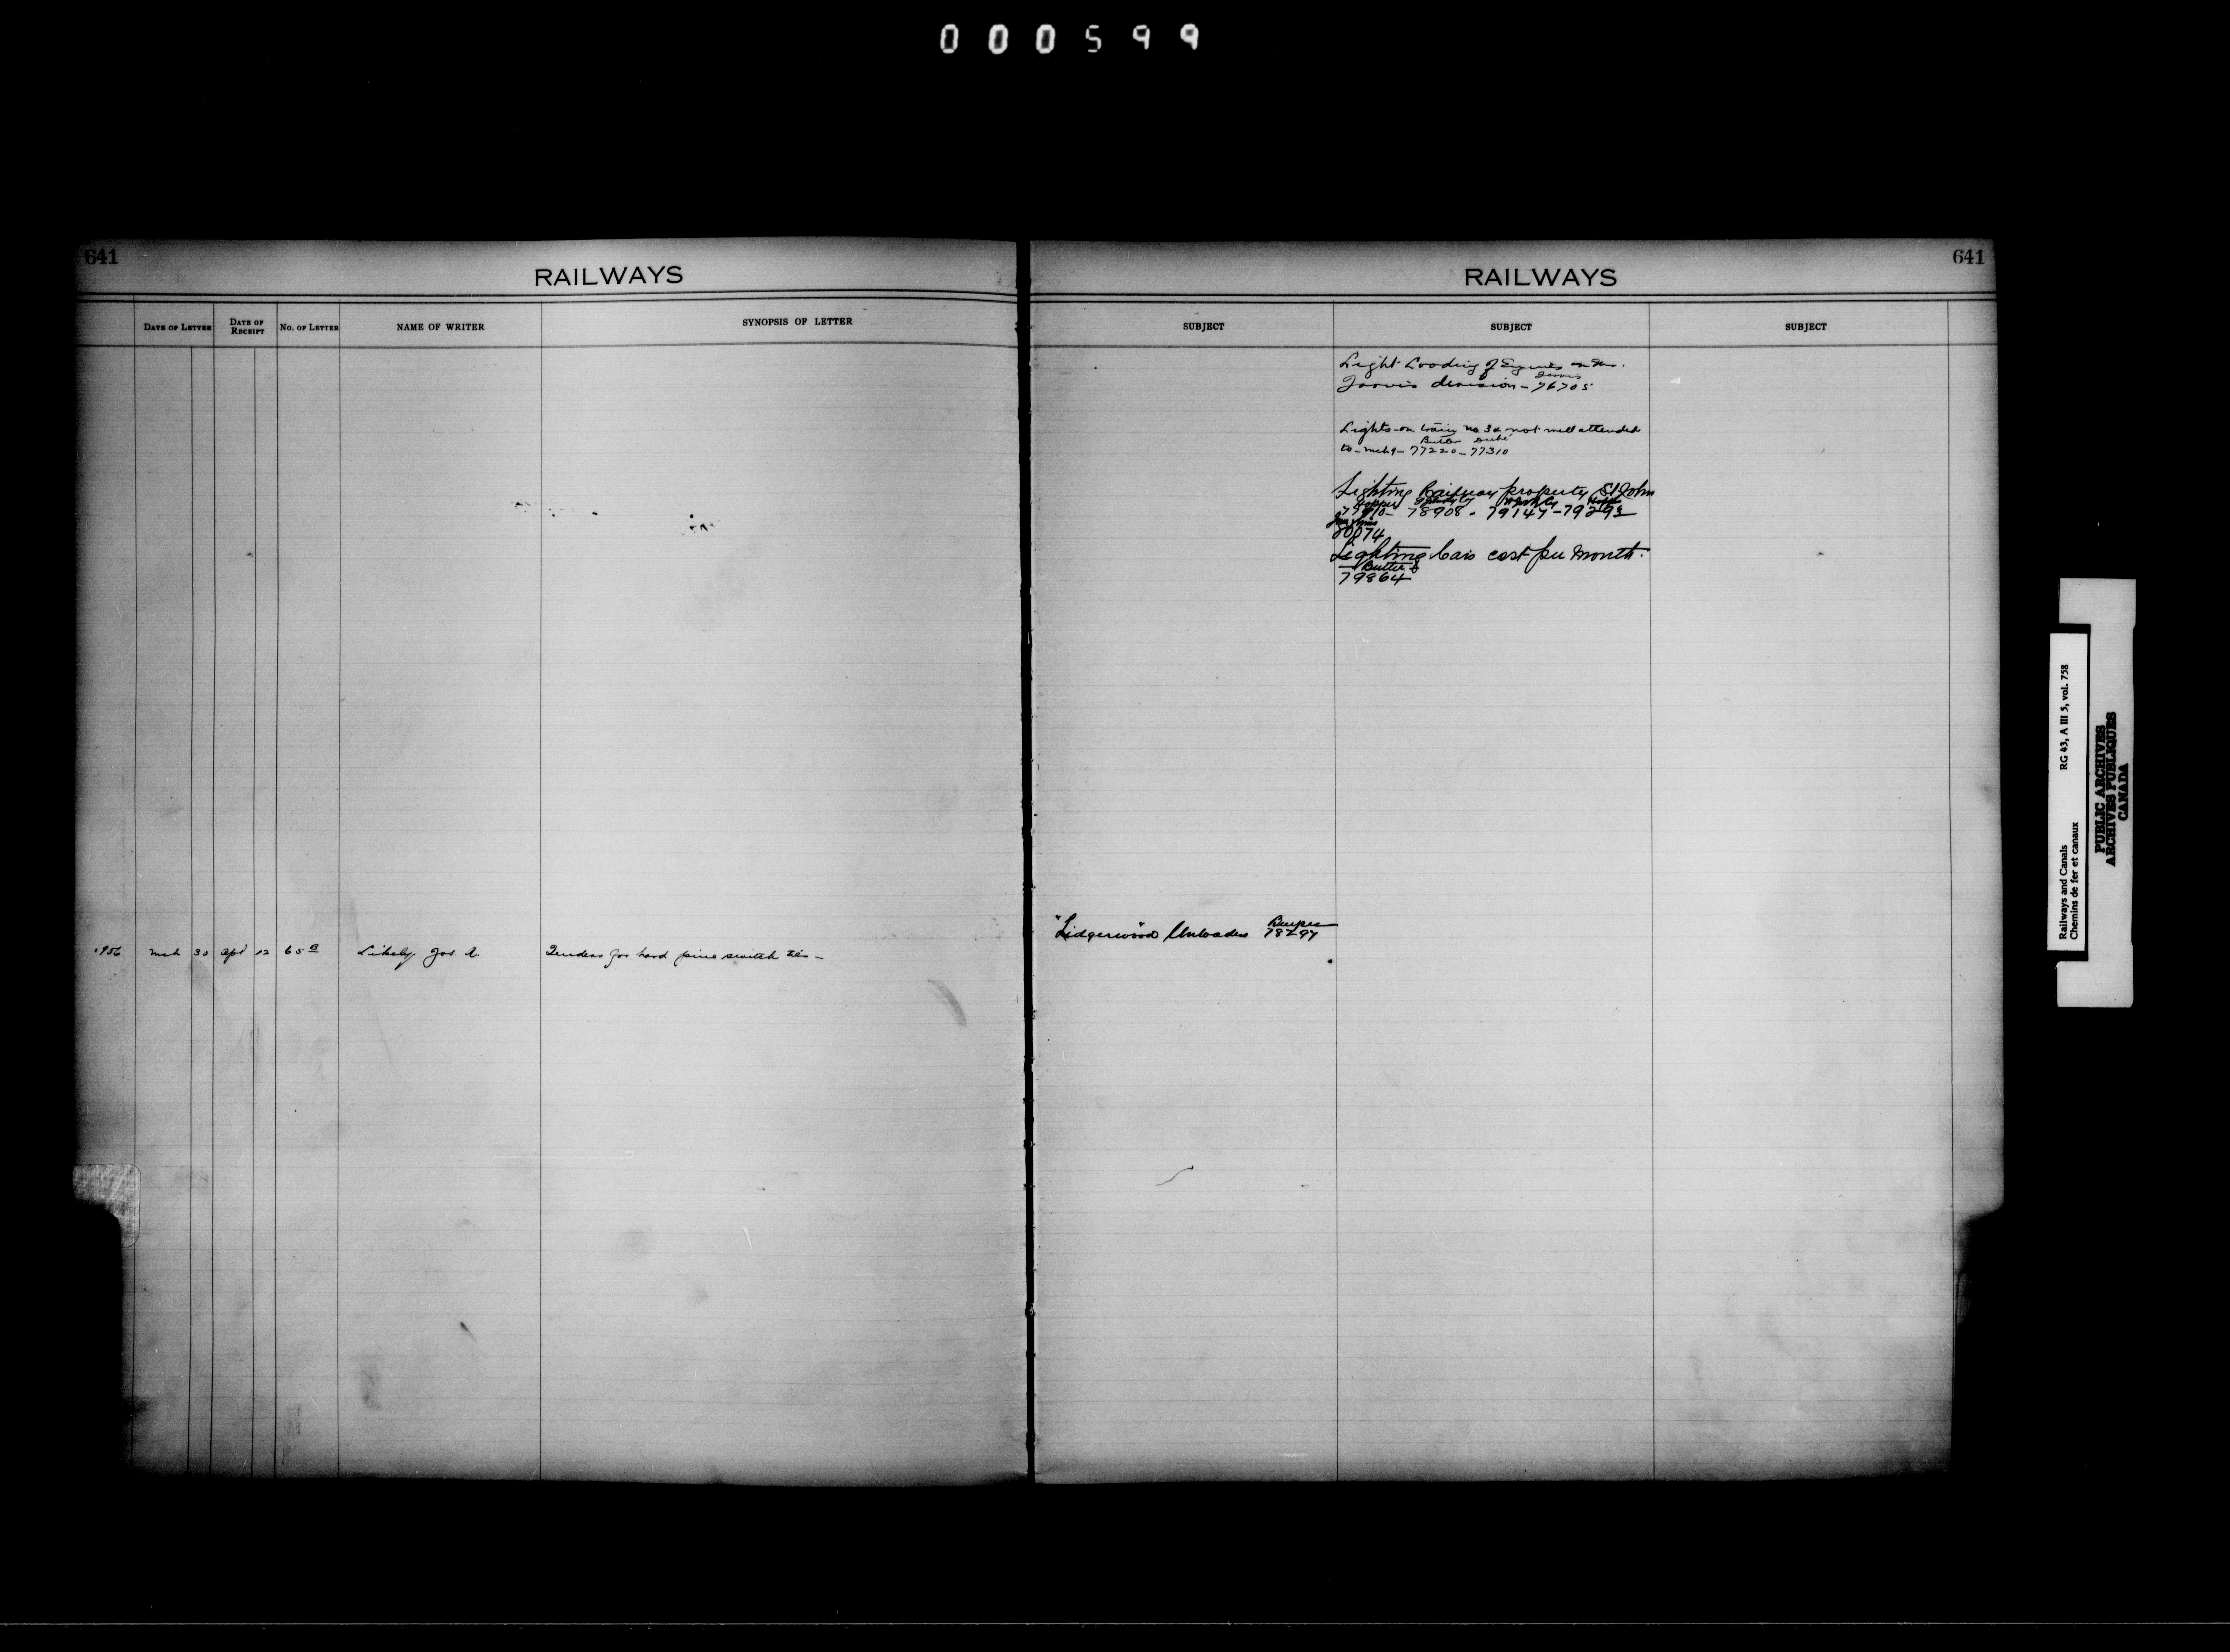 000599
641
RAILWAYS
DATE OF LETTER
DATE OF RECEIPT
No. OF LETTER
NAME OF WRITER
SYNOPSIS OF LETTER
mch 30 apl 12 65 a Likely Jos. A. Tenders for hard pine switch ties —
641
RAILWAYS
SUBJECT
SUBJECT
SUBJECT
Light Loading of Engines on the
Jarvis
Jarvis division - 76705
Lights on train no 34 not well attended
Butler Dubé
to - mch 9 - 77220 - 77310
Lighting Railway property St John
78908 - 79147 - 79292
80074
Lighting Cars cost per month.
Butler
79864
"Lidgerwood" Unloader Burpee
78297
Railways and Canals RG 43, A III 5, vol. 758
Chemins de fer et canaux
PUBLIC ARCHIVES
ARCHIVES PUBLIQUES
CANADA